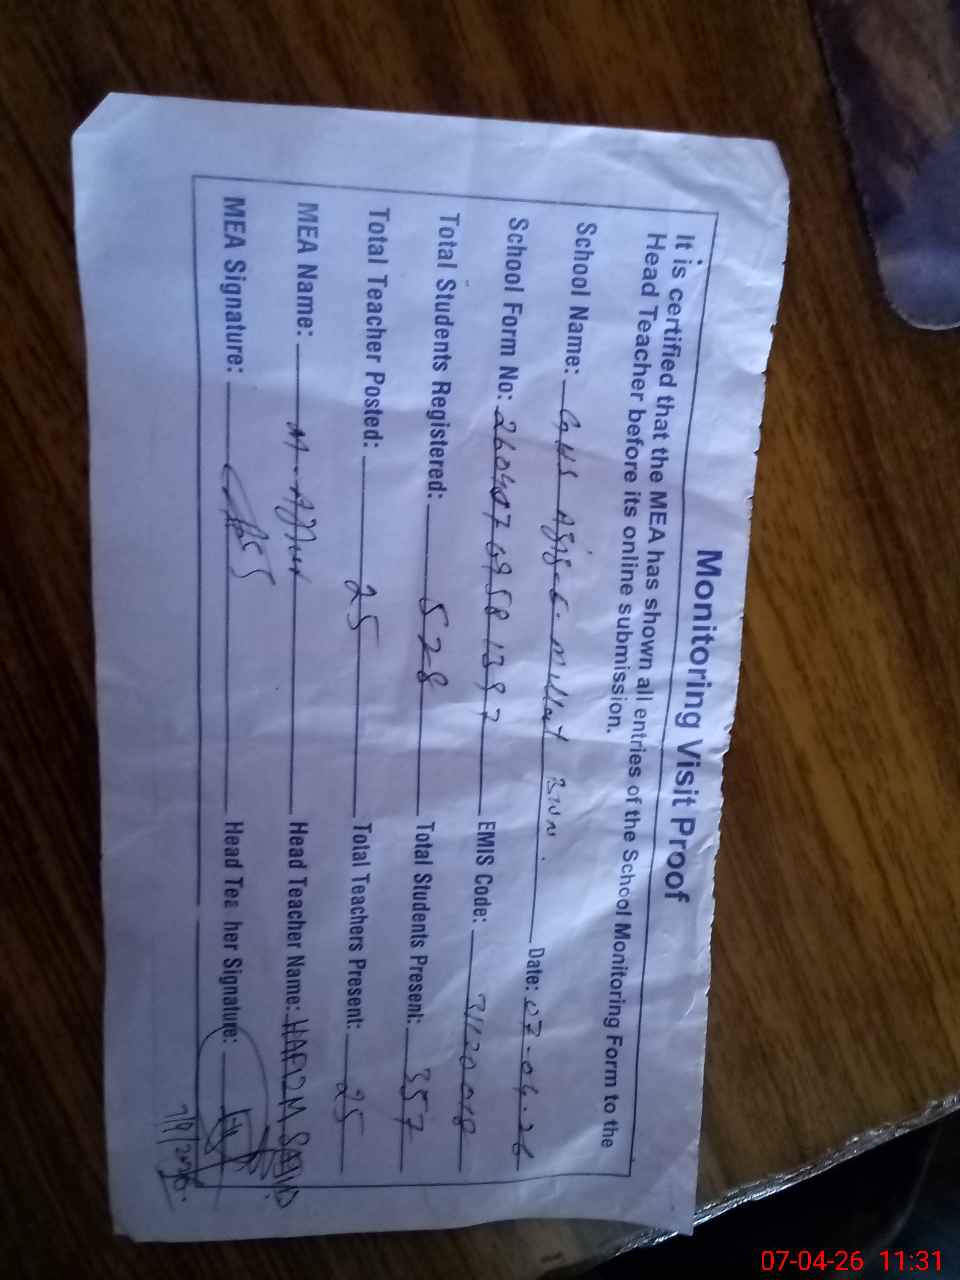 Monitoring Visit Proof
It is certified that the MEA has shown all entries of the School Monitoring Form to the
Head Teacher before its online submission.
School Name: GHS Millat BWN. Date: 07-04-26
School Form No: EMIS Code: 31120018
Total Students Registered: 528 Total Students Present: 357
Total Teacher Posted: 25 Total Teachers Present: 25
MEA Name: Head Teacher Name: HAFIZ M SAJID
MEA Signature: Head Teacher Signature:
7/4/2026.
07-04-26 11:31